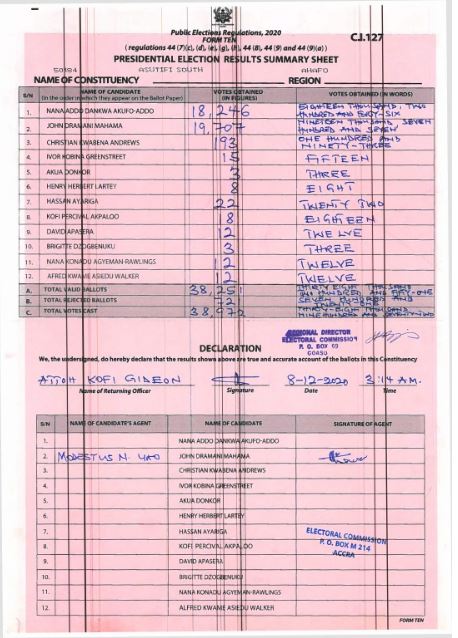 Public Elections Regulations, 2020
FORM TEN
C.I.127
( regulations 44 (7)(c), (d), (e), (g), (h), 44 (8), 44 (9) and 44 (9)(a) )
PRESIDENTIAL ELECTION RESULTS SUMMARY SHEET
ASUTIFI SOUTH AHAFO
NAME OF CONSTITUENCY REGION
S/N NAME OF CANDIDATE (in the order in which they appear on the Ballot Paper) VOTES OBTAINED (IN FIGURES) VOTES OBTAINED (IN WORDS)
1. NANA ADDO DANKWA AKUFO-ADDO 18,246 EIGHTEEN THOUSAND, TWO HUNDRED AND FORTY-SIX
2. JOHN DRAMANI MAHAMA 19,707 NINETEEN THOUSAND SEVEN HUNDRED AND SEVEN
3. CHRISTIAN KWABENA ANDREWS 193 ONE HUNDRED AND NINETY-THREE
4. IVOR KOBINA GREENSTREET 15 FIFTEEN
5. AKUA DONKOR 3 THREE
6. HENRY HERBERT LARTEY 8 EIGHT
7. HASSAN AYARIGA 22 TWENTY TWO
8. KOFI PERCIVAL AKPALOO 8 EIGHTEEN
9. DAVID APASERA 12 TWELVE
10. BRIGITTE DZOGBENUKU 3 THREE
11. NANA KONADU AGYEMAN-RAWLINGS 12 TWELVE
12. ALFRED KWAME ASIEDU WALKER 12 TWELVE
A. TOTAL VALID BALLOTS 38,251 THIRTY EIGHT THOUSAND TWO HUNDRED AND FIFTY-ONE
B. TOTAL REJECTED BALLOTS SEVEN HUNDRED AND TWENTY-ONE
C. TOTAL VOTES CAST 38,972 THIRTY-EIGHT THOUSAND NINE HUNDRED AND SEVENTY-TWO
REGIONAL DIRECTOR
ELECTORAL COMMISSION
P. O. BOX
GOASO
DECLARATION
We, the undersigned, do hereby declare that the results shown above are true and accurate account of the ballots in this Constituency
ATTOH KOFI GIDEON 8-12-2020 3:14 AM.
Name of Returning Officer Signature Date Time
S/N NAME OF CANDIDATE'S AGENT NAME OF CANDIDATE SIGNATURE OF AGENT
1. NANA ADDO DANKWA AKUFO-ADDO
2. MODESTUS N. JOHN DRAMANI MAHAMA
3. CHRISTIAN KWABENA ANDREWS
4. IVOR KOBINA GREENSTREET
5. AKUA DONKOR
6. HENRY HERBERT LARTEY
7. HASSAN AYARIGA
8. KOFI PERCIVAL AKPALOO
ELECTORAL COMMISSION
P. O. BOX M 214
ACCRA
9. DAVID APASERA
10. BRIGITTE DZOGBENUKU
11. NANA KONADU AGYEMAN-RAWLINGS
12. ALFRED KWAME ASIEDU WALKER
FORM TEN